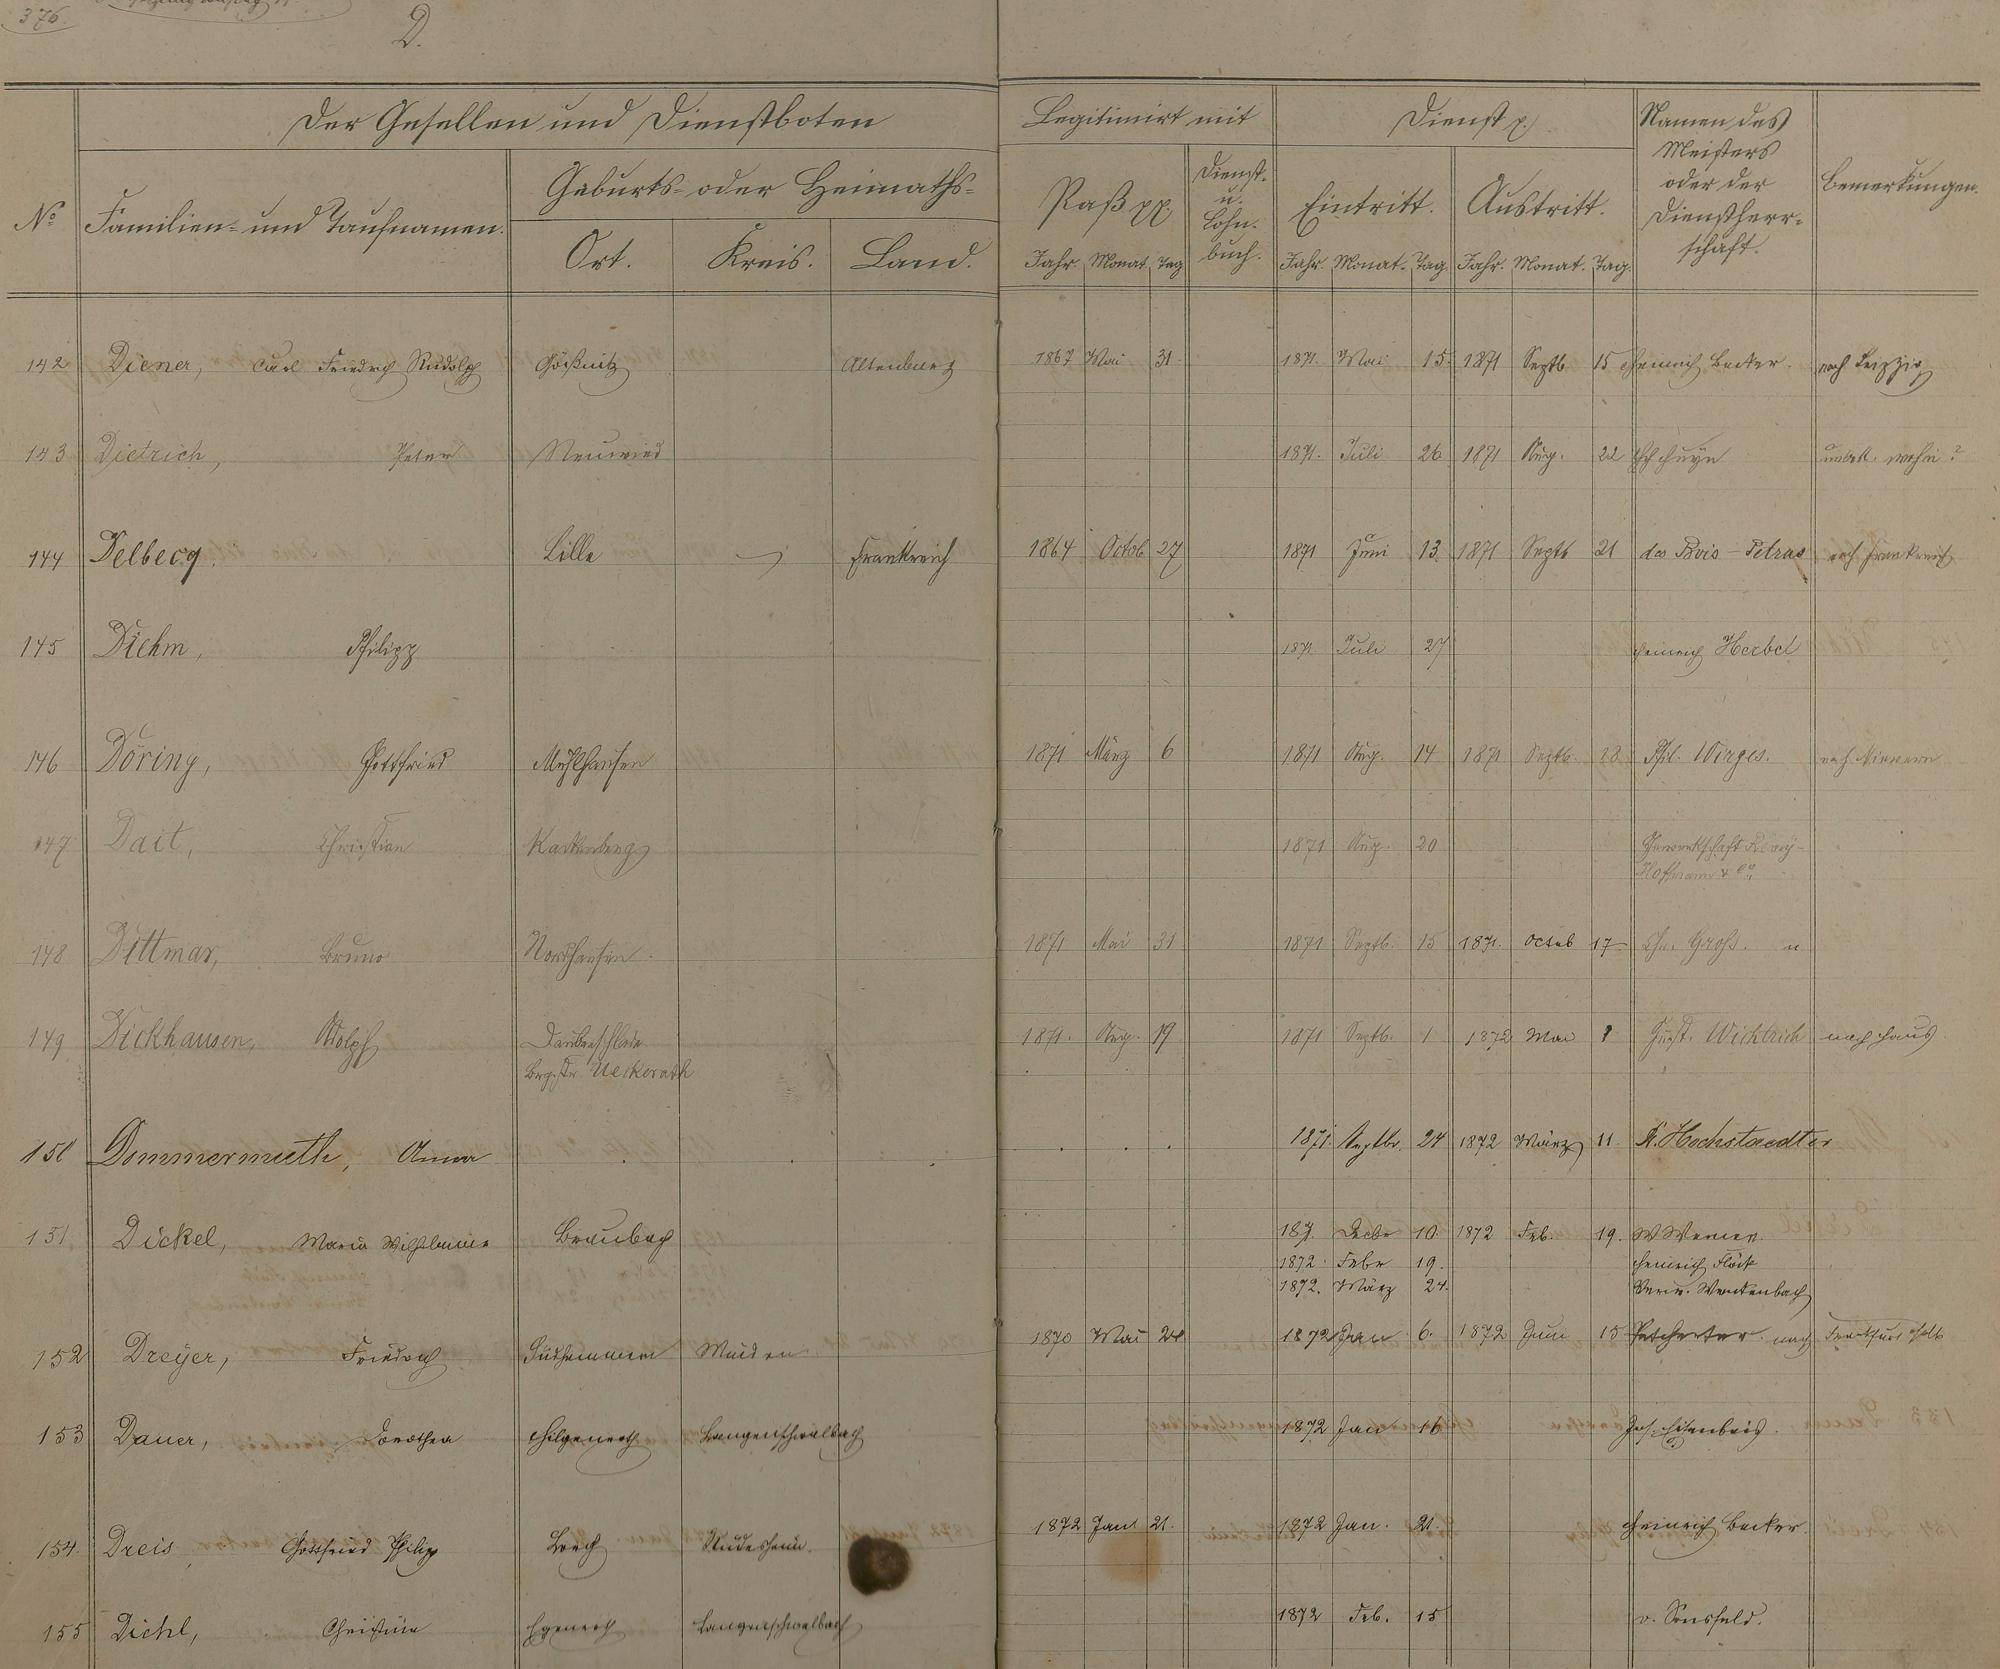 376.
D.
Der Gesellen und Dienstboten
Legitimirt mit
Dienst p.
Namen des
Meisters
oder der
Dienstherr-
schaft.
Bemerkungen.
No
Familien- und Taufnamen.
Geburts- oder Heimaths-
Ort. Kreis. Land.
Paß pp
Dienst-
u.
Lohn-
buch.
Eintritt. Austritt.
Jahr. Monat Tag Jahr. Monat. Tag. Jahr. Monat. Tag.
142 Diener, Carl Friedrich Rudolph Gößnitz Altenburg 1867 Mai 31. 1871. Mai 15. 1871 Septb. 15 Heinrich Becker. nach Leipzig
143 Dietrich, Peter Neuwied 1871. Juli 26 1871 Aug. 22 unbek. wohin?
144 Delbecq. Lille Frankreich 1864 Octob 27 1871 Juni 13. 1871 Septb 21 du Bois - Petras nach Frankreich
145 Diehm, Philipp 1871. Juli 27 Heinrich Herbel
146 Döring, Gottfried Mühlhausen 1871 März 6 1871 Aug. 14 1871 Septb. 18. Phil. Wirges. nach Nievern
147 Dait, Christian 1871 Aug. 20 Gewerkschaft
Hoffmann & Co.
148 Dittmar, Bruno Nordhausen. 1871 Mai 31 1871 Septb. 15 1871. Octob 17 Chr. Groß.
149 Dickhausen, Adolph 1871. Aug. 19 1871 Septb. 1 1872 Mai 8 Gust. Wichtrich nach Haus
Uckerath
150 Dommermuth, Anna 1871. Septbr. 24 1872 März 11. A. Hochstaedter
151. Dickel, Maria Wilhelmine Braubach 187. Decbr 10. 1872 Feb. 19. W Werner.
1872 Febr 19. Heinrich Flöck
1872. März 24. Wenkenbach
152 Dreyer, Friedrich Südhemmern Minden 1870 Mai 24 1872 Jan 6. 1872 Juni 15 nach Frankfurt
153 Dauer, Dorothea Hilgenroth Langenschwalbach 1872 Jan 16 Jos. Eisenbeis.
154. Dreis Gottfried Philipp Lorch Rüdesheim. 1872 Jan 21. 1872 Jan. 21. Heinrich Becker.
155 Diehl, Christine Egenroth Langenschwalbach 1872 Feb. 15 v. Sonsfeld.